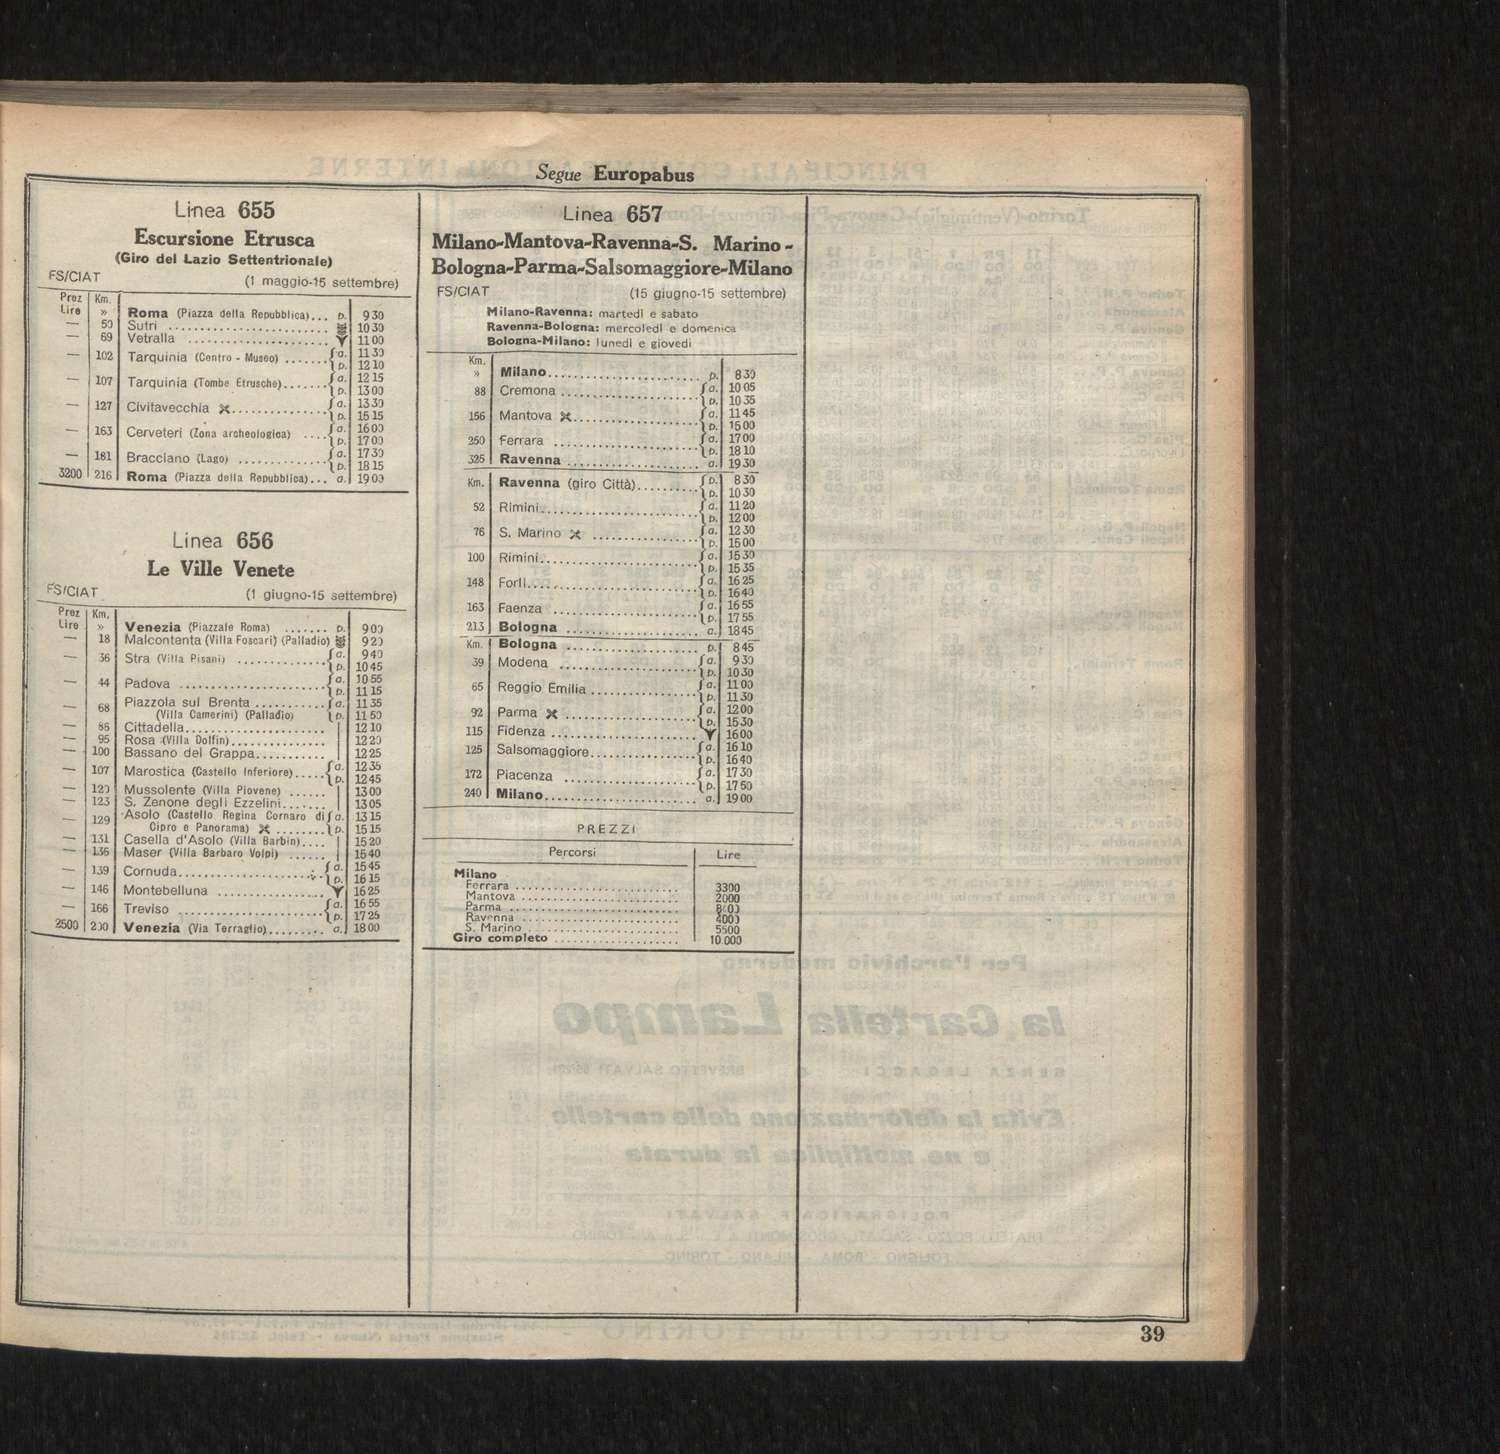 Segue Europabus
Linea 655
Escursione Etrusca
(Giro del Lazio Settentrionale)
FS/CIAT (1 maggio-15 settembre)
Prez Lire Km.
» Roma (Piazza della Repubblica)... p. 9 30
— 50 Sutri 10 30
— 69 Vetralla 11 00
— 102 Tarquinia (Centro - Museo) a. 11 30
p. 12 10
— 107 Tarquinia (Tombe Etrusche) a. 12 15
p. 13 00
— 127 Civitavecchia a. 13 30
p. 15 15
— 163 Cerveteri (Zona archeologica) a. 16 00
p. 17 00
— 181 Bracciano (Lago) a. 17 30
p. 18 15
3200 216 Roma (Piazza della Repubblica)... a. 19 00
Linea 656
Le Ville Venete
FS/CIAT (1 giugno-15 settembre)
Prez Lire Km.
» Venezia (Piazzale Roma) p. 9 00
— 18 Malcontenta (Villa Foscari) (Palladio) 9 20
— 36 Stra (Villa Pisani) a. 9 40
p. 10 45
— 44 Padova a. 10 55
p. 11 15
— 68 Piazzola sul Brenta a. 11 35
(Villa Camerini) (Palladio) p. 11 50
— 86 Cittadella 12 10
— 95 Rosa (Villa Dolfin) 12 20
— 100 Bassano del Grappa 12 25
— 107 Marostica (Castello Inferiore) a. 12 35
p. 12 45
— 120 Mussolente (Villa Piovene) 13 00
— 123 S. Zenone degli Ezzelini 13 05
— 129 Asolo (Castello Regina Cornaro di a. 13 15
Cipro e Panorama) p. 15 15
— 131 Casella d'Asolo (Villa Barbin) 15 20
— 136 Maser (Villa Barbaro Volpi) 15 40
— 139 Cornuda a. 15 45
p. 16 15
— 146 Montebelluna 16 25
— 166 Treviso a. 16 55
p. 17 25
2500 200 Venezia (Via Terraglio) a. 18 00
Linea 657
Milano-Mantova-Ravenna-S. Marino-
Bologna-Parma-Salsomaggiore-Milano
FS/CIAT (15 giugno-15 settembre)
Milano-Ravenna: martedì e sabato
Ravenna-Bologna: mercoledì e domenica
Bologna-Milano: lunedì e giovedì
Km.
» Milano p. 8 30
88 Cremona a. 10 05
p. 10 35
156 Mantova a. 11 45
p. 15 00
250 Ferrara a. 17 00
p. 18 10
325 Ravenna a. 19 30
Km. Ravenna (giro Città) p. 8 30
p. 10 30
52 Rimini a. 11 20
p. 12 00
76 S. Marino a. 12 30
p. 15 00
100 Rimini a. 15 30
p. 15 35
148 Forlì a. 16 25
p. 16 40
163 Faenza a. 16 55
p. 17 55
213 Bologna a. 18 45
Km. Bologna p. 8 45
39 Modena a. 9 30
p. 10 30
65 Reggio Emilia a. 11 00
p. 11 30
92 Parma a. 12 00
p. 15 30
115 Fidenza 16 00
125 Salsomaggiore a. 16 10
p. 16 40
172 Piacenza a. 17 30
p. 17 50
240 Milano a. 19 00
PREZZI
Percorsi Lire
Milano
Ferrara 3300
Mantova 2000
Parma
Ravenna 4000
S. Marino 5500
Giro completo 10.000
39